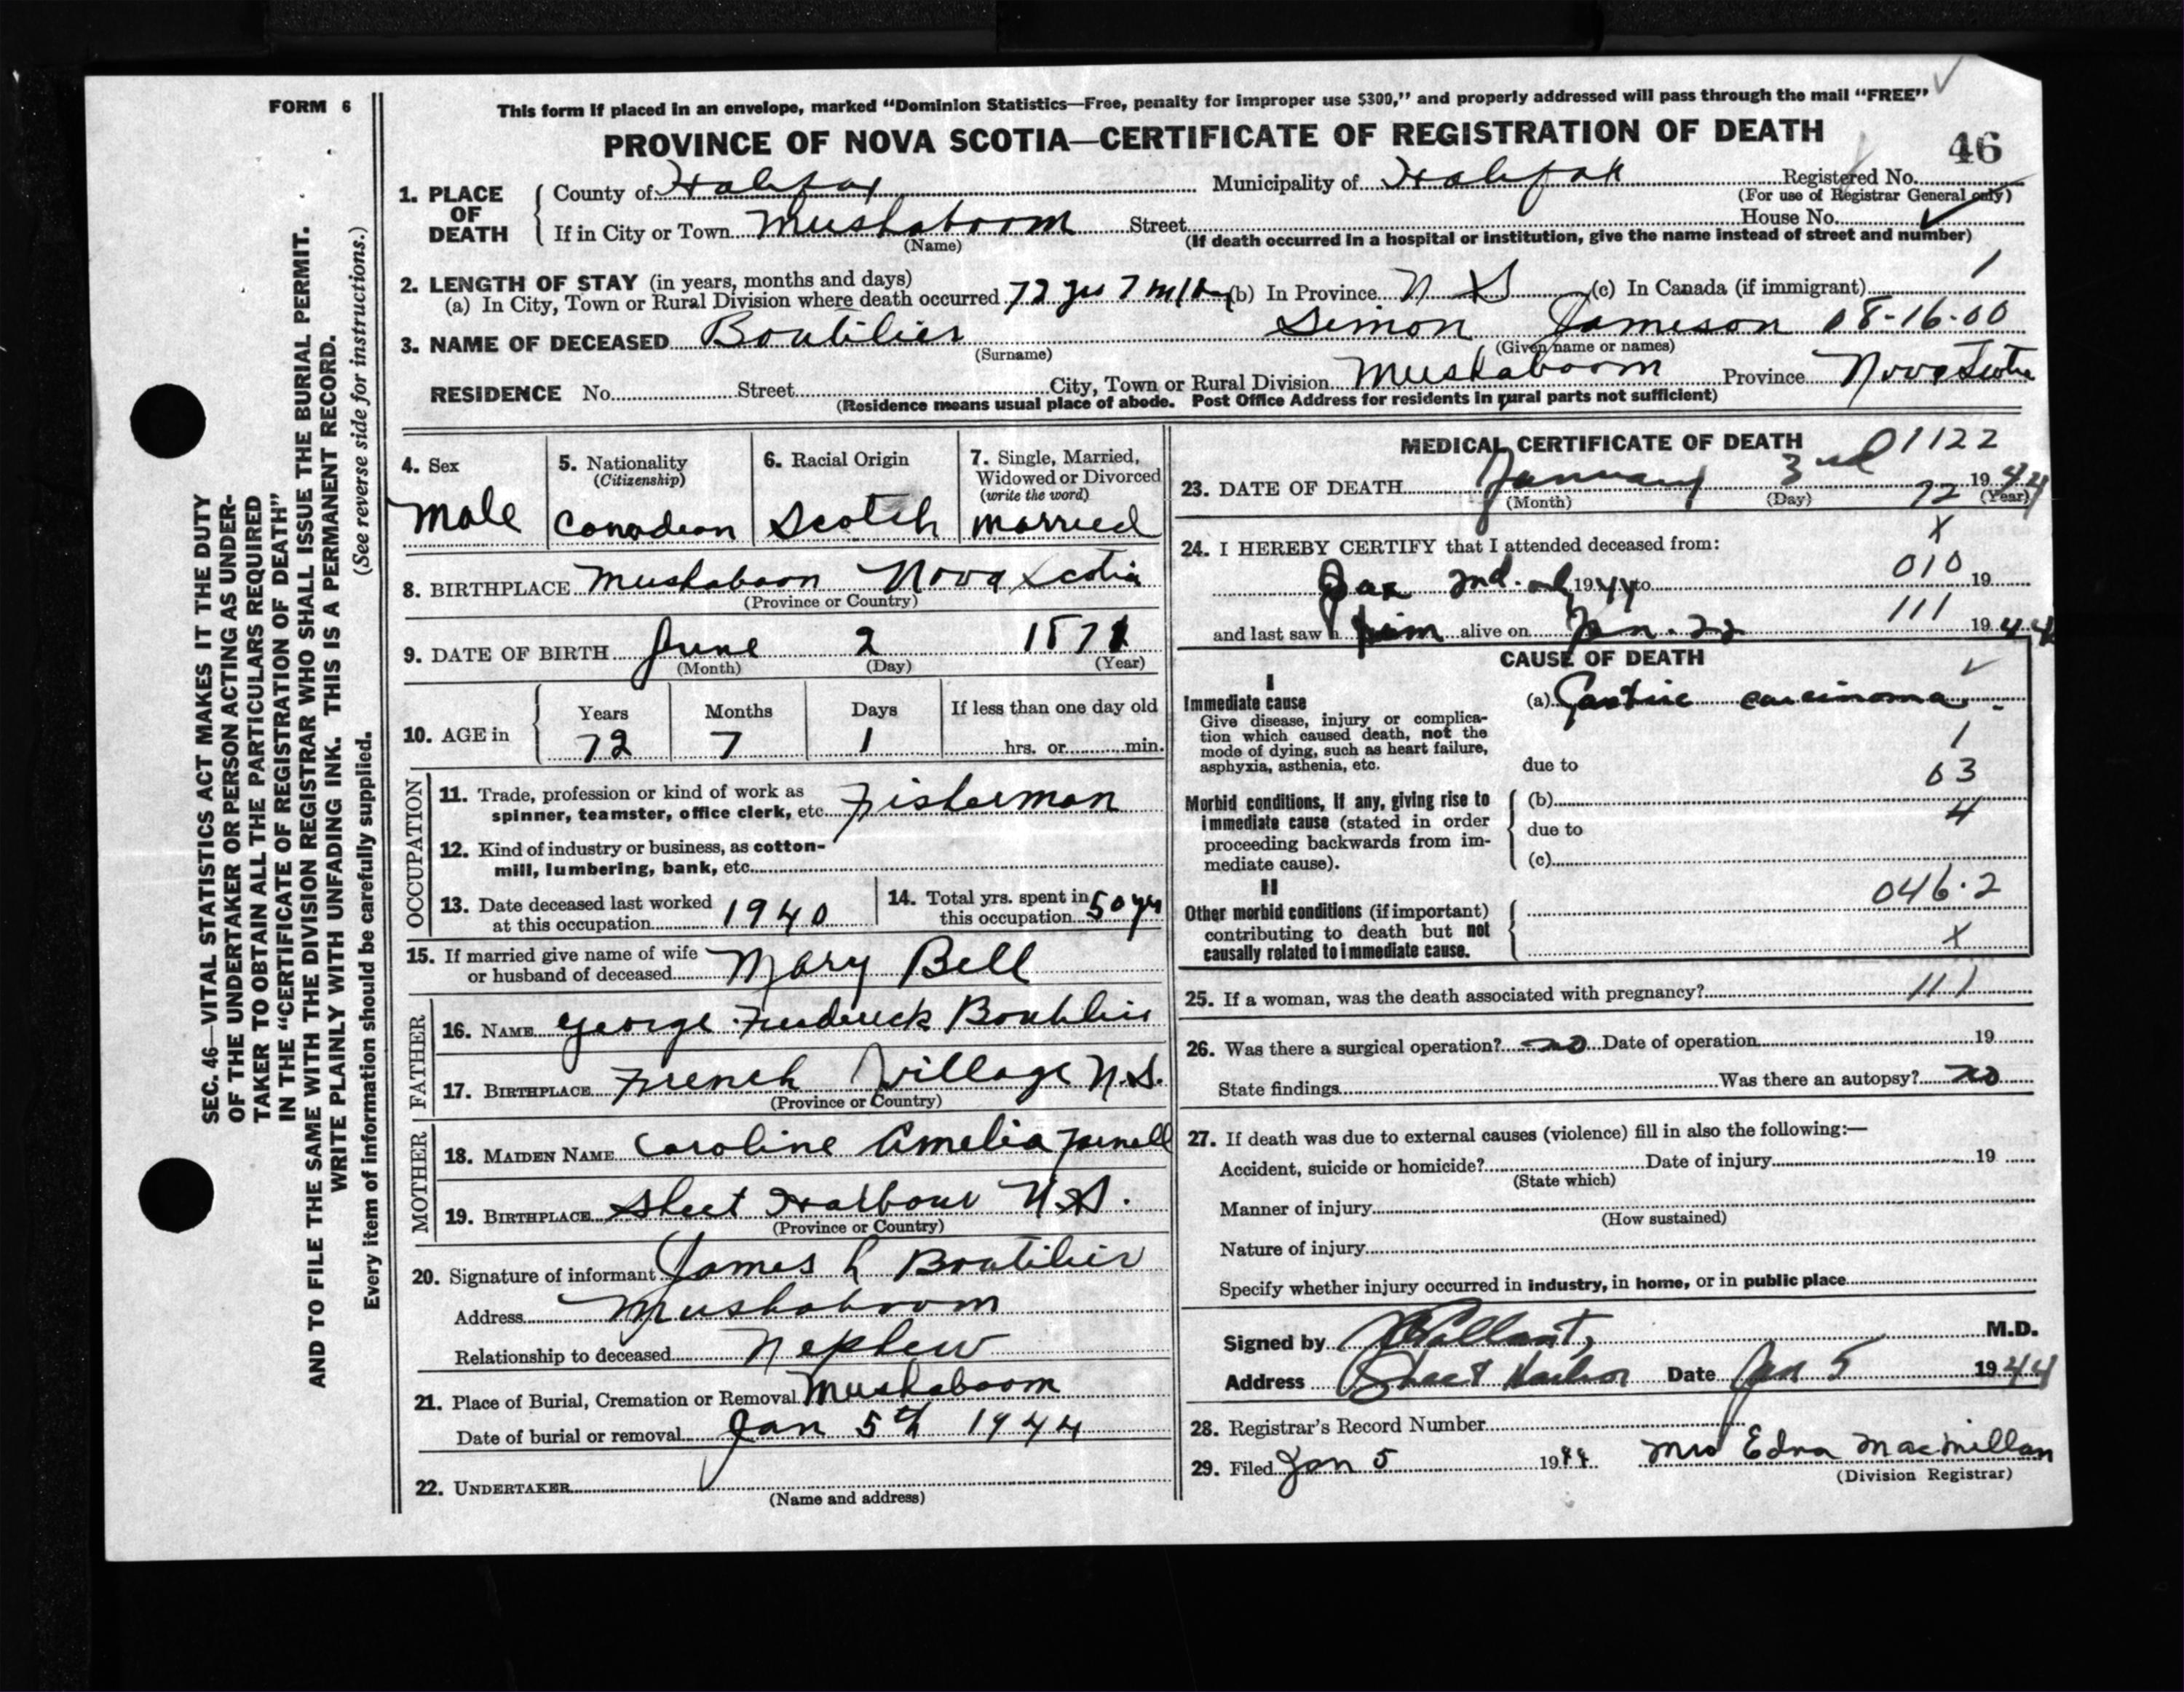 FORM 6
This form if placed in an envelope, marked “Dominion Statistics—Free, penalty for improper use $300,” and properly addressed will pass through the mail “FREE”
PROVINCE OF NOVA SCOTIA—CERTIFICATE OF REGISTRATION OF DEATH
46
1. PLACE OF DEATH
County of Halifax Municipality of Halifax Registered No.
(For use of Registrar General only)
If in City or Town Mushaboom Street House No.
(Name) (If death occurred in a hospital or institution, give the name instead of street and number)
2. LENGTH OF STAY (in years, months and days)
(a) In City, Town or Rural Division where death occurred 72 yrs 7 m 1 Day (b) In Province N S (c) In Canada (if immigrant)
1
3. NAME OF DECEASED Boutilier Simon Jameson 08-16-00
(Surname) (Given name or names)
RESIDENCE No. Street City, Town or Rural Division Mushaboom Province Nova Scotia
(Residence means usual place of abode. Post Office Address for residents in rural parts not sufficient)
4. Sex
Male
5. Nationality
(Citizenship)
Canadian
6. Racial Origin
Scotch
7. Single, Married, Widowed or Divorced
(write the word)
Married
8. BIRTHPLACE Mushaboon Nova Scotia
(Province or Country)
9. DATE OF BIRTH June 2 1871
(Month) (Day) (Year)
10. AGE in
Years Months Days If less than one day old
72 7 1 hrs. or min.
OCCUPATION
11. Trade, profession or kind of work as
spinner, teamster, office clerk, etc. Fisherman
12. Kind of industry or business, as cotton-
mill, lumbering, bank, etc.
13. Date deceased last worked
at this occupation 1940
14. Total yrs. spent in
this occupation 50 yrs
15. If married give name of wife
or husband of deceased Mary Bell
FATHER
16. NAME George Frederick Boutilier
17. BIRTHPLACE French Village N.S.
(Province or Country)
MOTHER
18. MAIDEN NAME Caroline Amelia
19. BIRTHPLACE Sheet Harbour N.S.
(Province or Country)
20. Signature of informant James L Boutilier
Address Mushaboom
Relationship to deceased Nephew
21. Place of Burial, Cremation or Removal Mushaboom
Date of burial or removal Jan 5th 1944
22. UNDERTAKER
(Name and address)
MEDICAL CERTIFICATE OF DEATH
01122
23. DATE OF DEATH January 3rd 1944
(Month) (Day) (Year)
72
X
24. I HEREBY CERTIFY that I attended deceased from:
010
Jan 2nd. 1944 to 19
111
and last saw h him alive on Jan. 1944
CAUSE OF DEATH
I
Immediate cause
Give disease, injury or complica-
tion which caused death, not the
mode of dying, such as heart failure,
asphyxia, asthenia, etc.
(a) Gastric carcinoma
1
due to
03
Morbid conditions, if any, giving rise to
immediate cause (stated in order
proceeding backwards from im-
mediate cause).
(b)
4
due to
(c)
II
046.2
Other morbid conditions (if important)
contributing to death but not
causally related to immediate cause.
X
25. If a woman, was the death associated with pregnancy? 111
26. Was there a surgical operation? no Date of operation 19
State findings Was there an autopsy? no
27. If death was due to external causes (violence) fill in also the following:—
Accident, suicide or homicide? Date of injury 19
(State which)
Manner of injury
(How sustained)
Nature of injury
Specify whether injury occurred in industry, in home, or in public place
Signed by M.D.
Address Sheet Harbor Date Jan 5 1944
28. Registrar's Record Number
29. Filed Jan 5 1944 Mrs Edna MacMillan
(Division Registrar)
SEC. 46—VITAL STATISTICS ACT MAKES IT THE DUTY
OF THE UNDERTAKER OR PERSON ACTING AS UNDER-
TAKER TO OBTAIN ALL THE PARTICULARS REQUIRED
IN THE “CERTIFICATE OF REGISTRATION OF DEATH”
AND TO FILE THE SAME WITH THE DIVISION REGISTRAR WHO SHALL ISSUE THE BURIAL PERMIT.
WRITE PLAINLY WITH UNFADING INK. THIS IS A PERMANENT RECORD.
Every item of information should be carefully supplied. (See reverse side for instructions.)